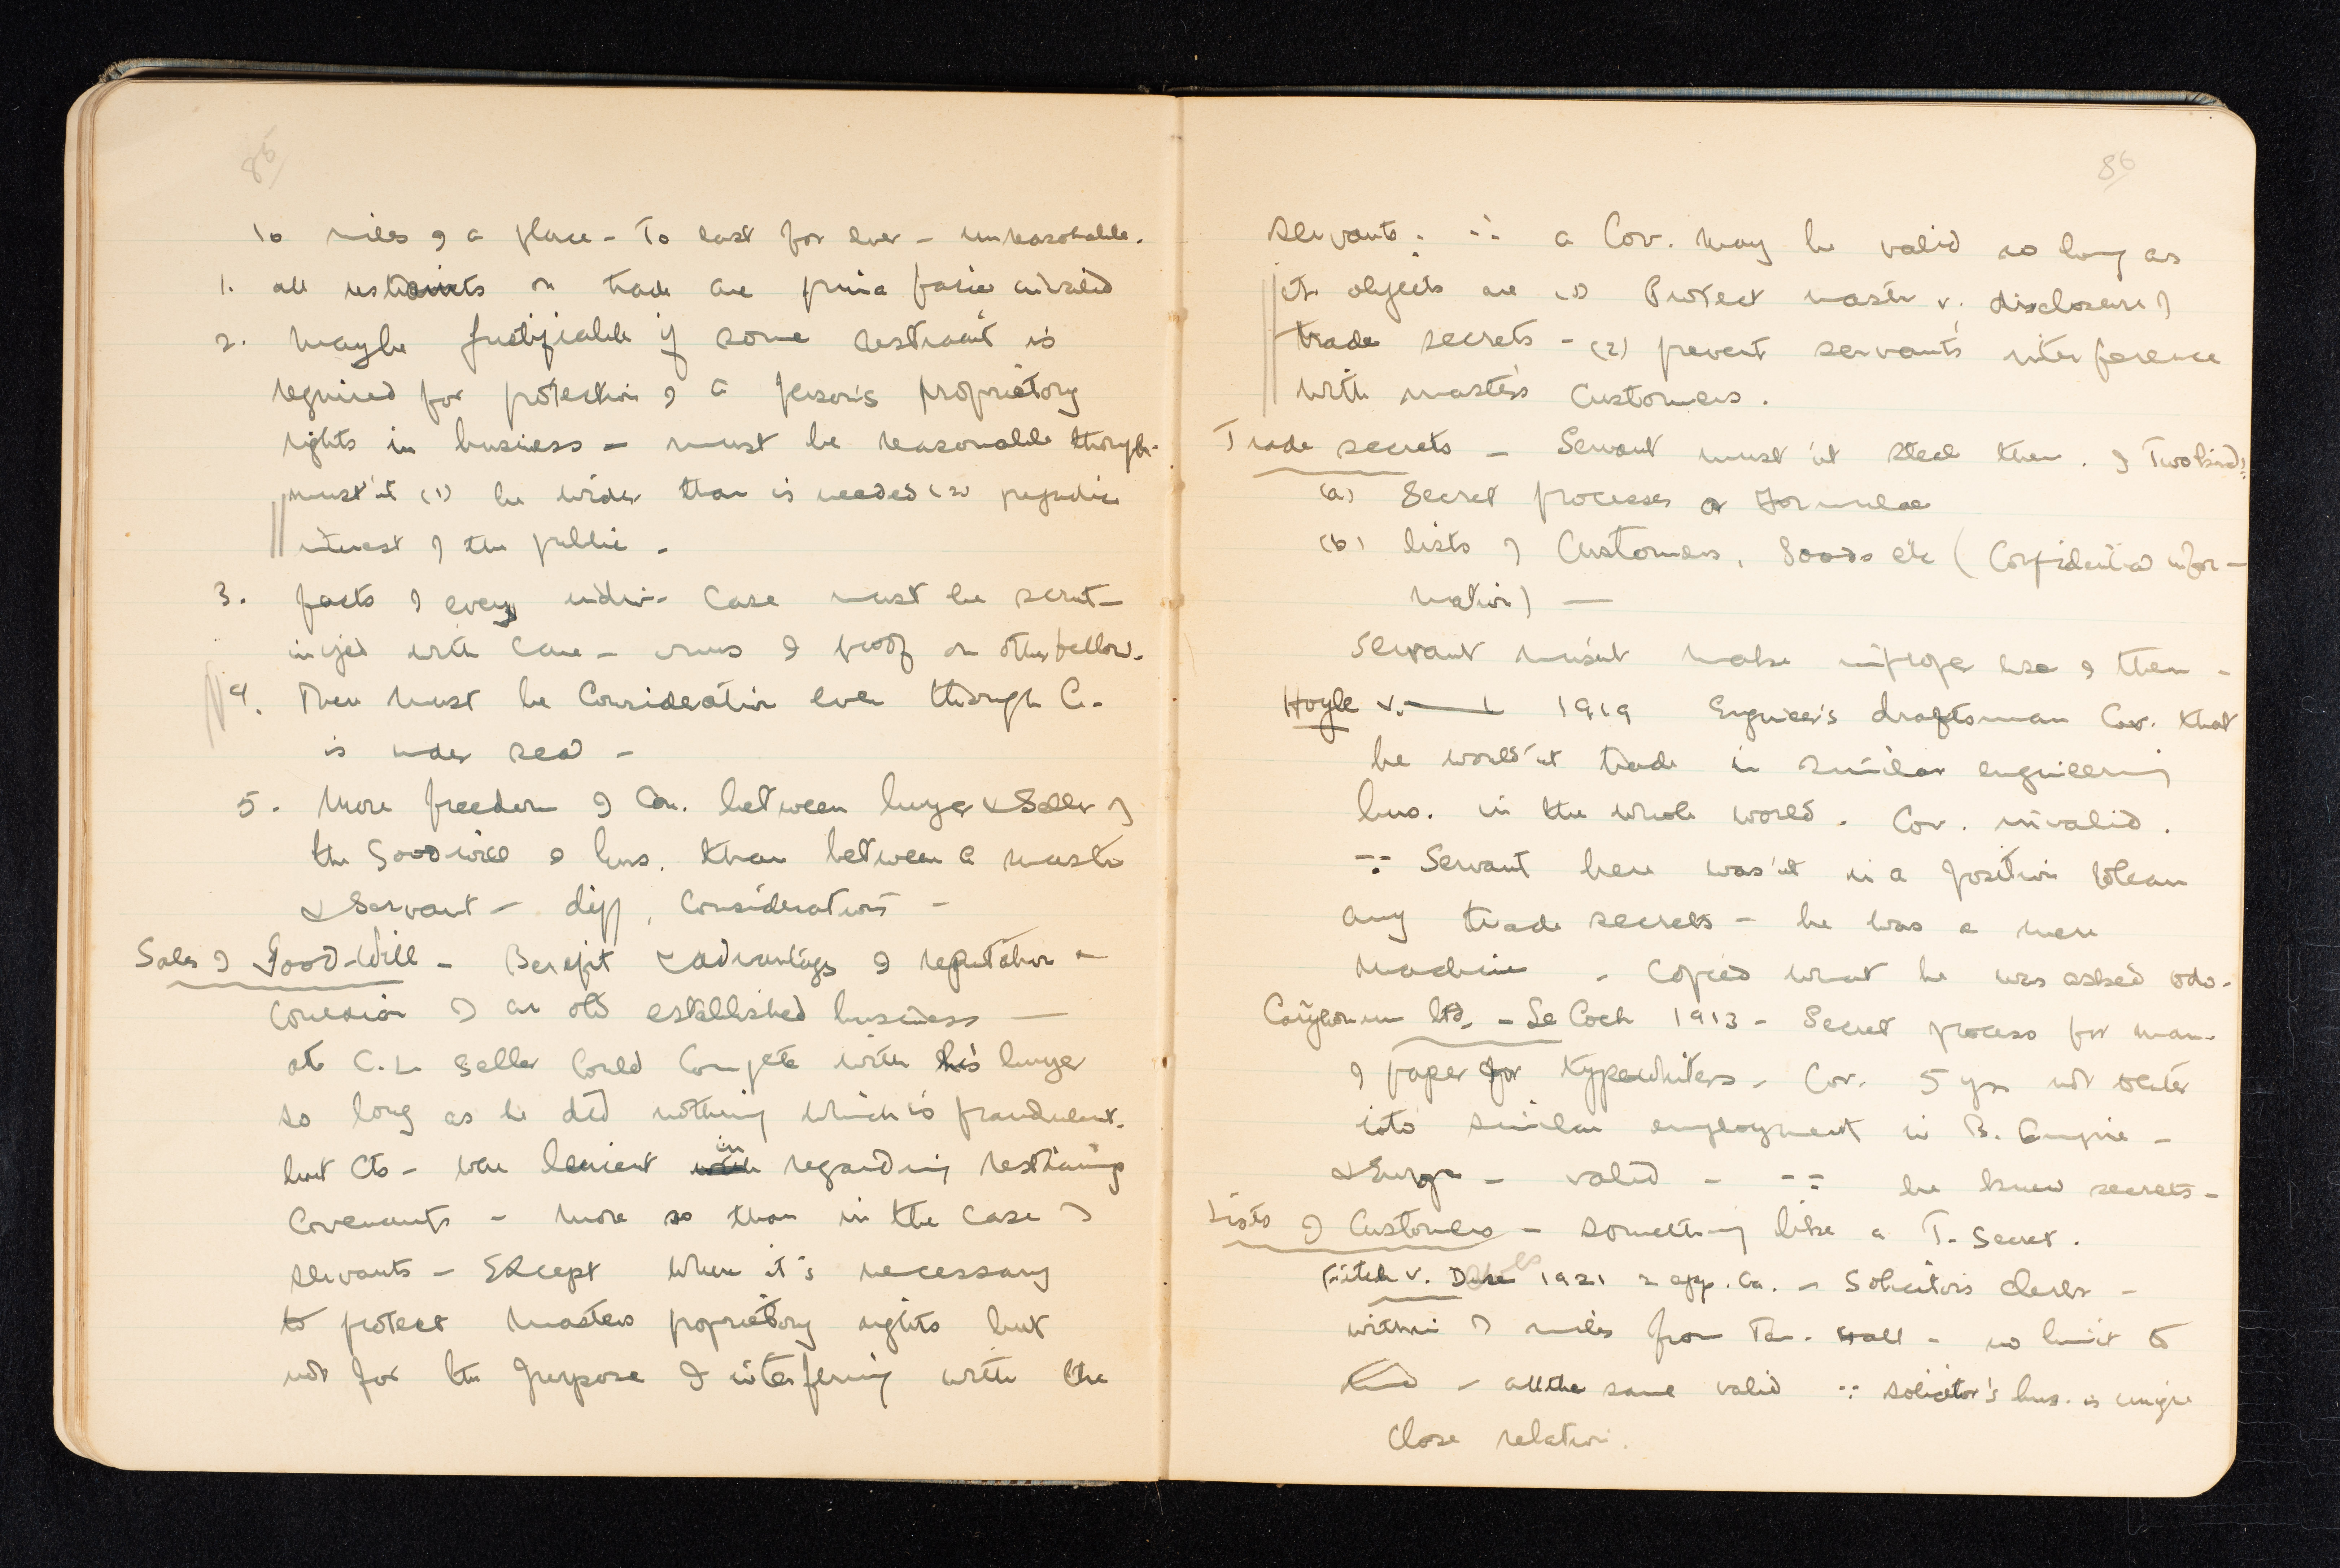 85
10 miles of a place - To last for ever - unreasonable.
1. all restraints on trade are prima facie invalid
2. Maybe justifiable if some restraint is
required for protection of a person's proprietory
rights in business - must be reasonable though -
must'nt (1) be wider than is needed (2) prejudice
interest of the public -
3. facts of every indiv. case must be scrut-
inized with care - onus of proof on other fellow.
4. There must be Consideration even though C.
is under seal -
5. More freedom of Con. between buyer & Seller of
the Goodwill of bus. than between a master
& Servant - diff. Considerations -
Sales of Good-Will - Benefit & advantage of reputation &
Conexion of an old established business -
at C.L. Seller Could Compete with his buyer
so long as he did nothing which is fraudulent.
but Cts - were lenient in regarding restraining
Covenants - More so than in the case of
servants - Except where it's necessary
to protect Masters proprietory rights but
not for the purpose of interfering with the
86
servants. ∴ a Cov. may be valid so long as
its objects are (1) Protect master v. disclosure of
trade secrets - (2) prevent servants interference
with master's Customers.
Trade secrets - Servant must'nt steal them. of Two kinds:
(a) Secret processes or Formulae
(b) lists of Customers, Goods etc (Confidential infor-
mation) -
Servant mus'nt make improper use of them -
Hoyle v. 1919 Engineer's draftsman Cov. that
he would'nt trade in similar engineering
bus. in the whole world. Cov. invalid.
∵ Servant here was'nt in a position to learn
any trade secrets - he was a mere
Machine - Copied what he was asked to do.
Ltd. - Le Coch 1913 - Secret process for man.
of paper for typewriters - Cov. 5 yrs not to enter
into similar employment in B. Empire -
& Europe - valid - ∵ he knew secrets -
Lists of Customers - something like a T. Secret.
Fitch v. Dewes 1921 2 App. Ca. - Solicitors clerk -
within 7 miles from Tam. Hall - no limit to
time - all the same valid ∵ solicitor's bus. is unique
Close relation.